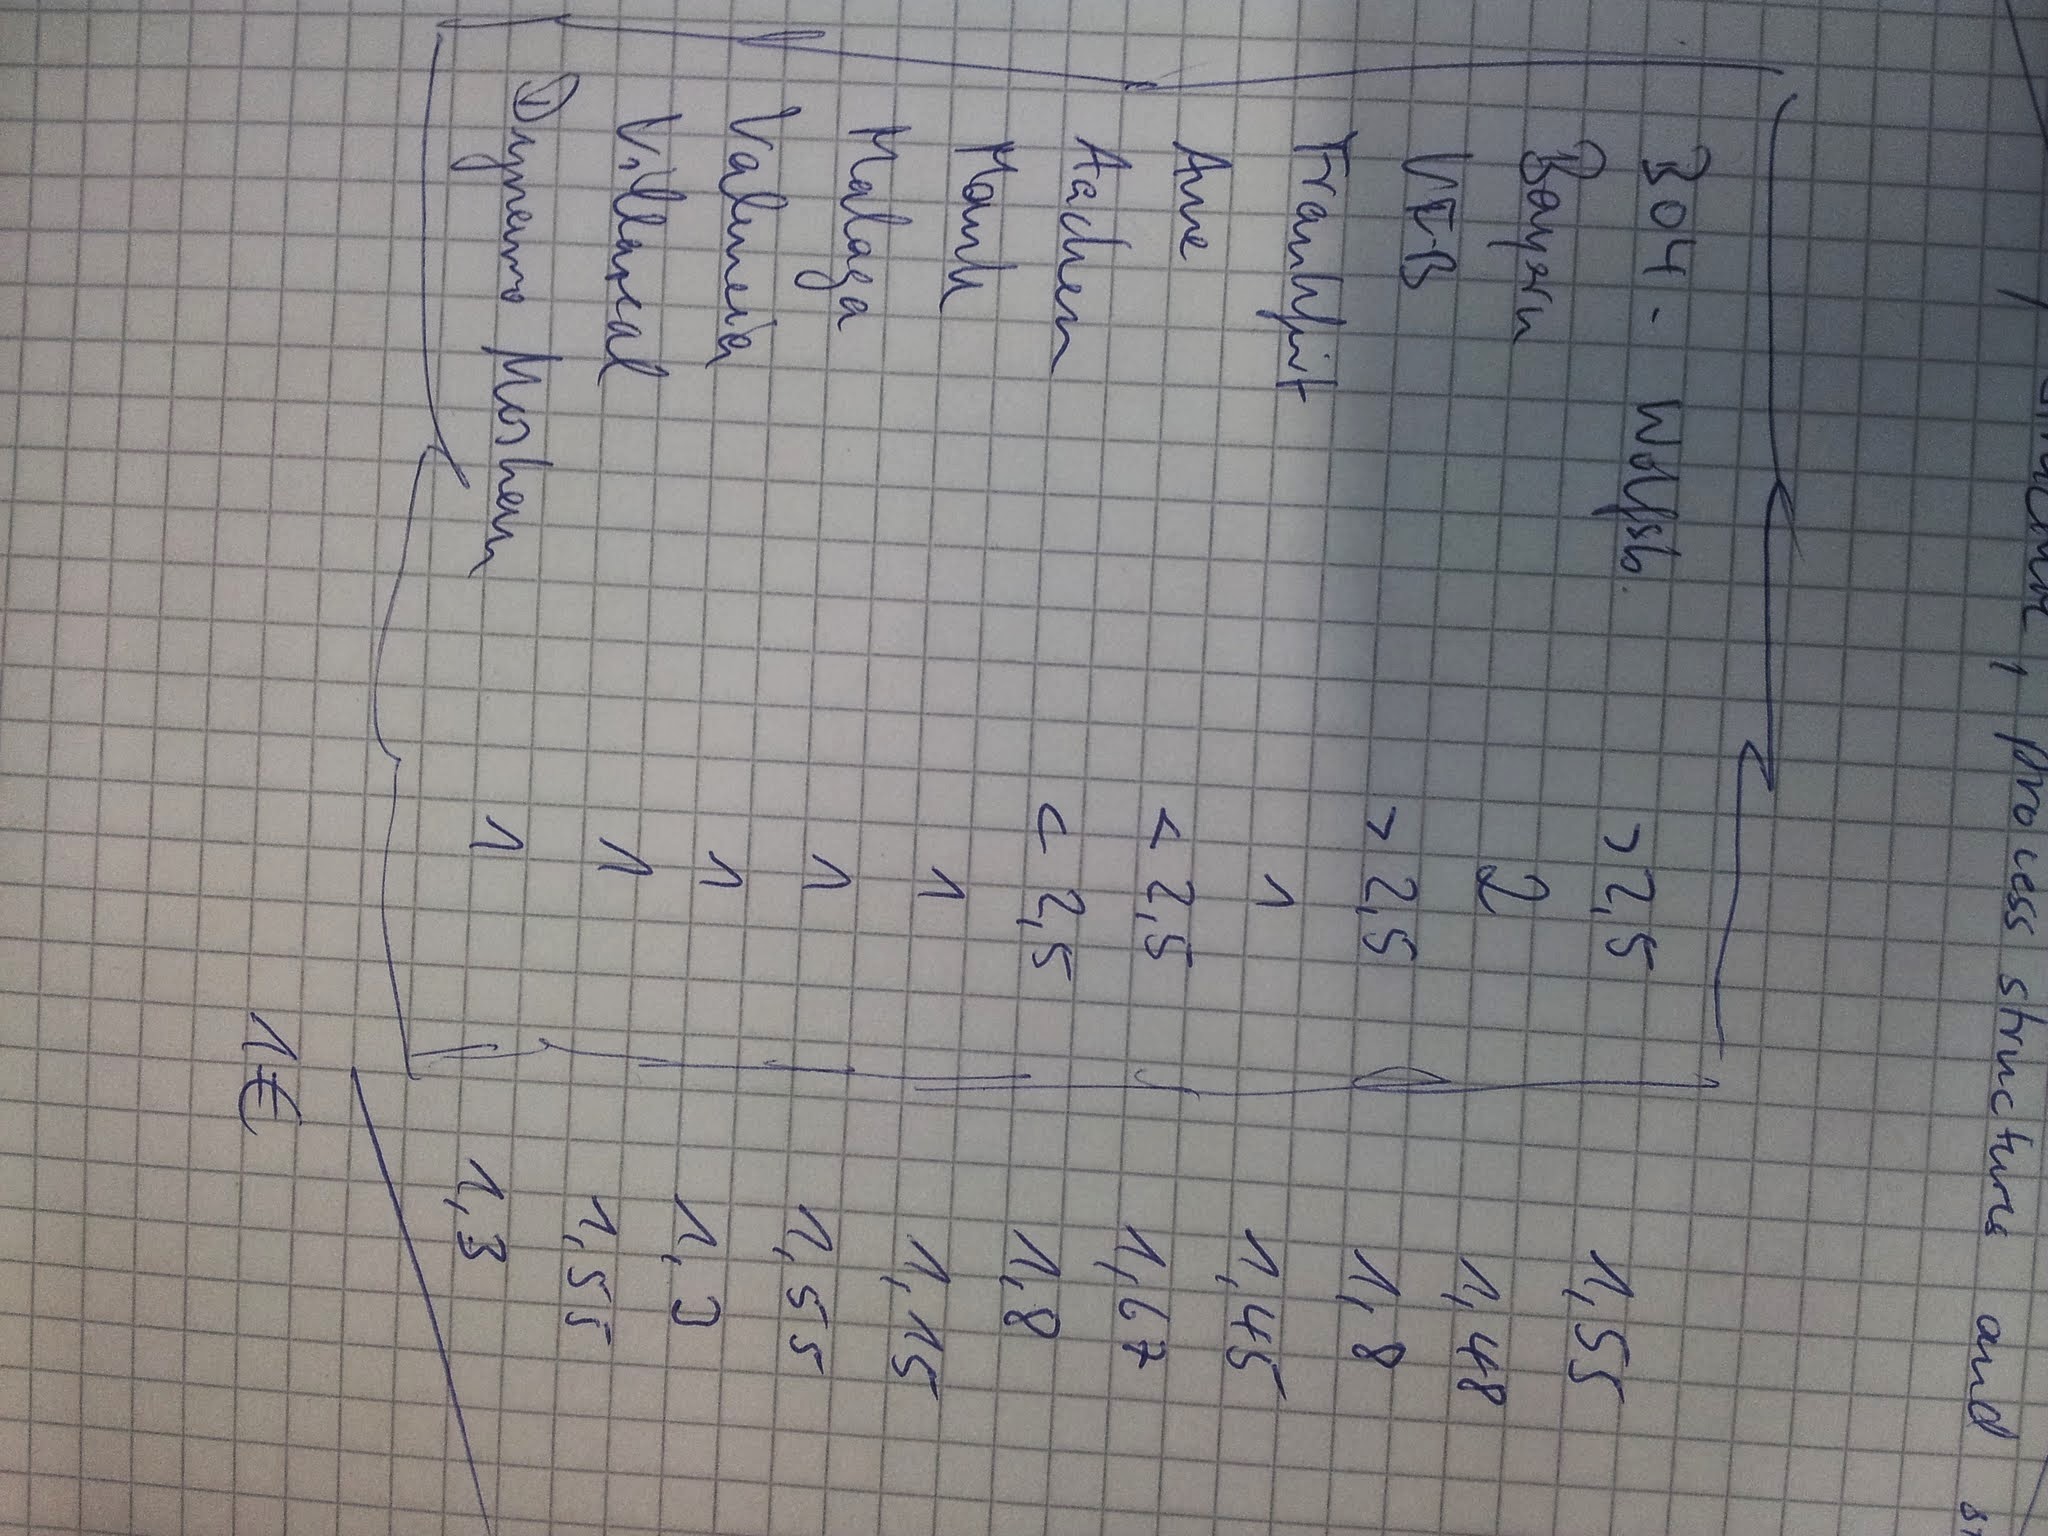 , process structure and
B04 - Wolfsb. >2,5 1,55
Bayern 2 1,48
VfB >2,5 1,8
Frankfurt 1 1,45
Aue < 2,5 1,67
Aachen < 2,5 1,8
1 1,15
Malaga 1 1,55
Valencia 1 1,3
Villareal 1 1,55
Dynamo Moskau 1 1,3
1€